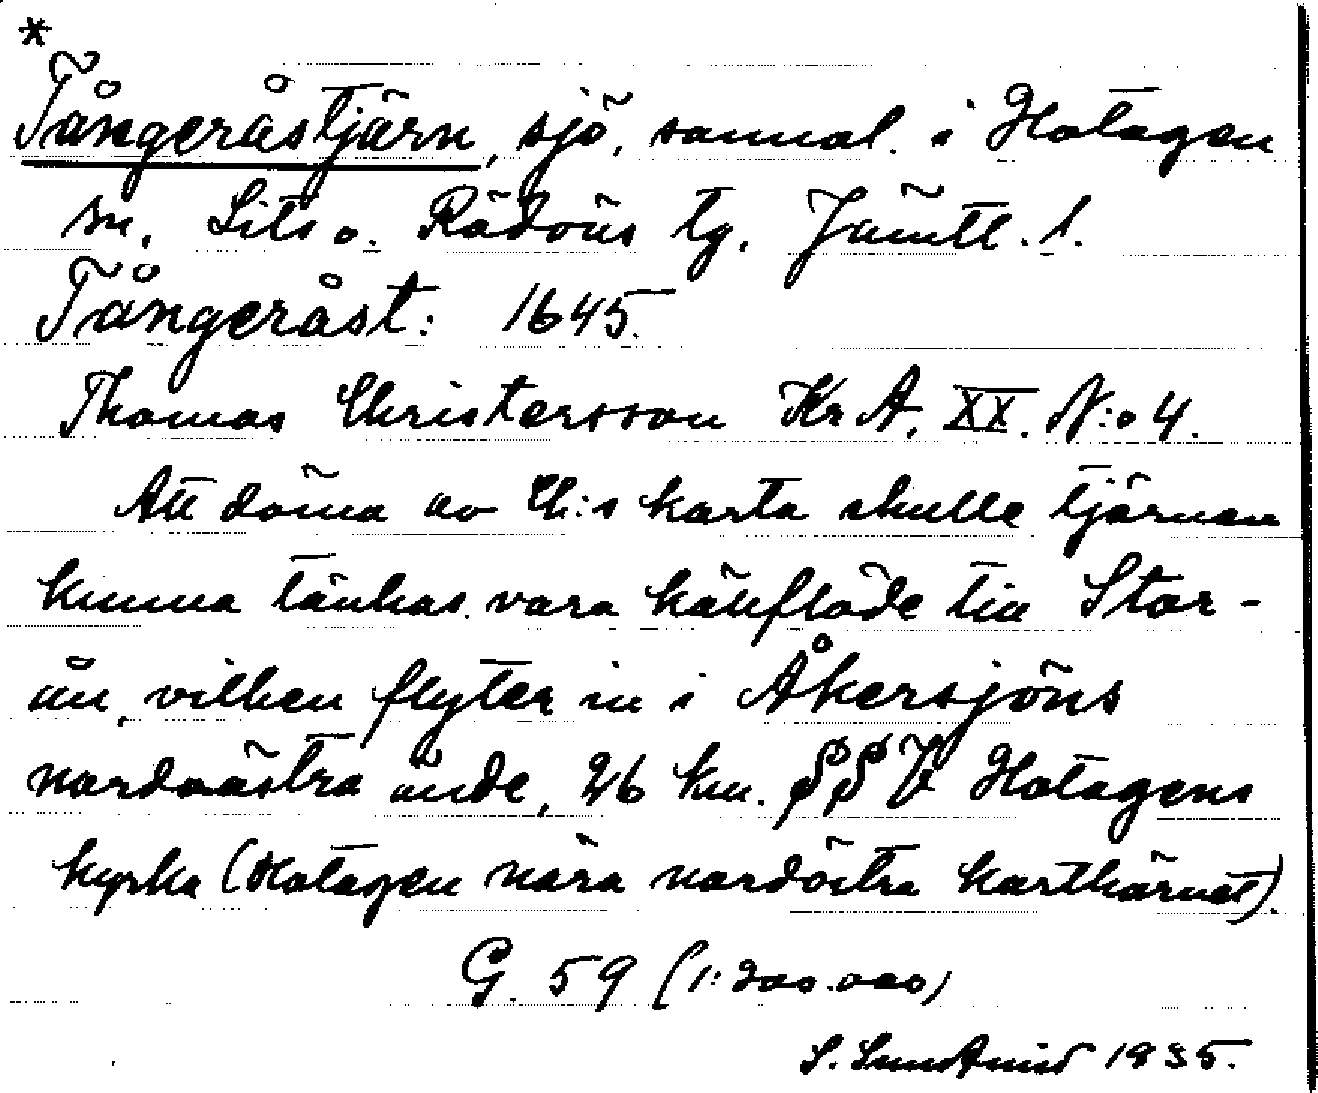 *
Tångeråstjärn, sjö, sannol. i Hotagen
sn. Lits o. Rödöns tg. Jämtl. l.
Tångeråst: 1645.
Thomas Christersson Kr A. XX. N:o 4.
Att döma av Ch:s karta skulle tjärnen
kunna tänkas vara källflöde till Stor-
ån, vilken flyter in i Åkersjöns
nordvästra ände, 26 km. SSV Hotagens
kyrka (Hotagen nära nordöstra karthörnet).
G. 59 (1:200.000)
S. 1935.